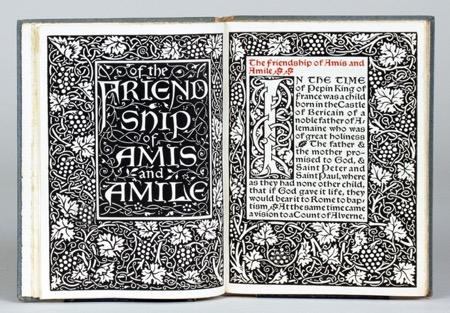 of the
FRIEND
SHIP
AMIS
and
AMILE
The friendship of Amis and
Amile
IN THE TIME
of Pepin King of
France was a child
born in the Castle
of Bericain of a
noble father of Al-
emaine who was
of great holiness
The father &
the mother pro-
mised to God, &
Saint Peter and
Saint Paul, where
as they had none other child,
that if God gave it life, they
would bear it to Rome to bap-
tism. At the same time came
a vision to a Count of Alverne,